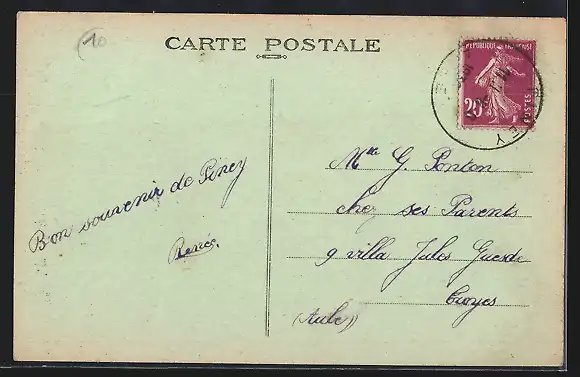 10
CARTE POSTALE
REPUBLIQUE FRANÇAISE
20c
POSTES
Bon souvenir de Piney
Renée.
Mlle G. Ponton
chez ses Parents
9 villa Jules Guesde
Troyes
(Aube)